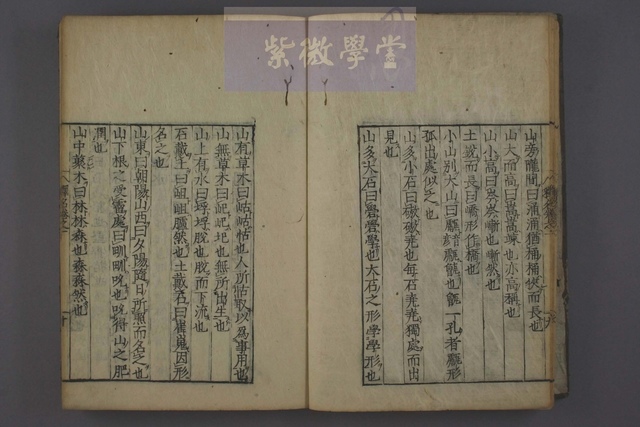 紫微學堂
山旁隴間曰涌涌猶桶桶狹而長也
山大而高曰嵩嵩竦也亦高稱也
山小高曰岑岑嶃也嶃然也
土說而長曰嶞形
小山別大山曰甗甗甑也甑一孔者甗形
孤出處似之也
山多小石曰磝磝堯也每石堯堯獨處而出
見也
山多大石曰礐礐學也大石之形學學形也
山有草木曰岵岵怙也人所怙取以爲事用也
山無草木曰屺屺圮也無所出生也
山上有水曰埒埒脫也脫而下流也
石戴土曰岨岨臚然也土戴石曰崔嵬因形
名之也
山東曰朝陽山西曰夕陽隨日所照而名之也
山下根之受霤處曰甽甽吮也吮得山之肥
潤也
山中藂木曰林林森也森森然也